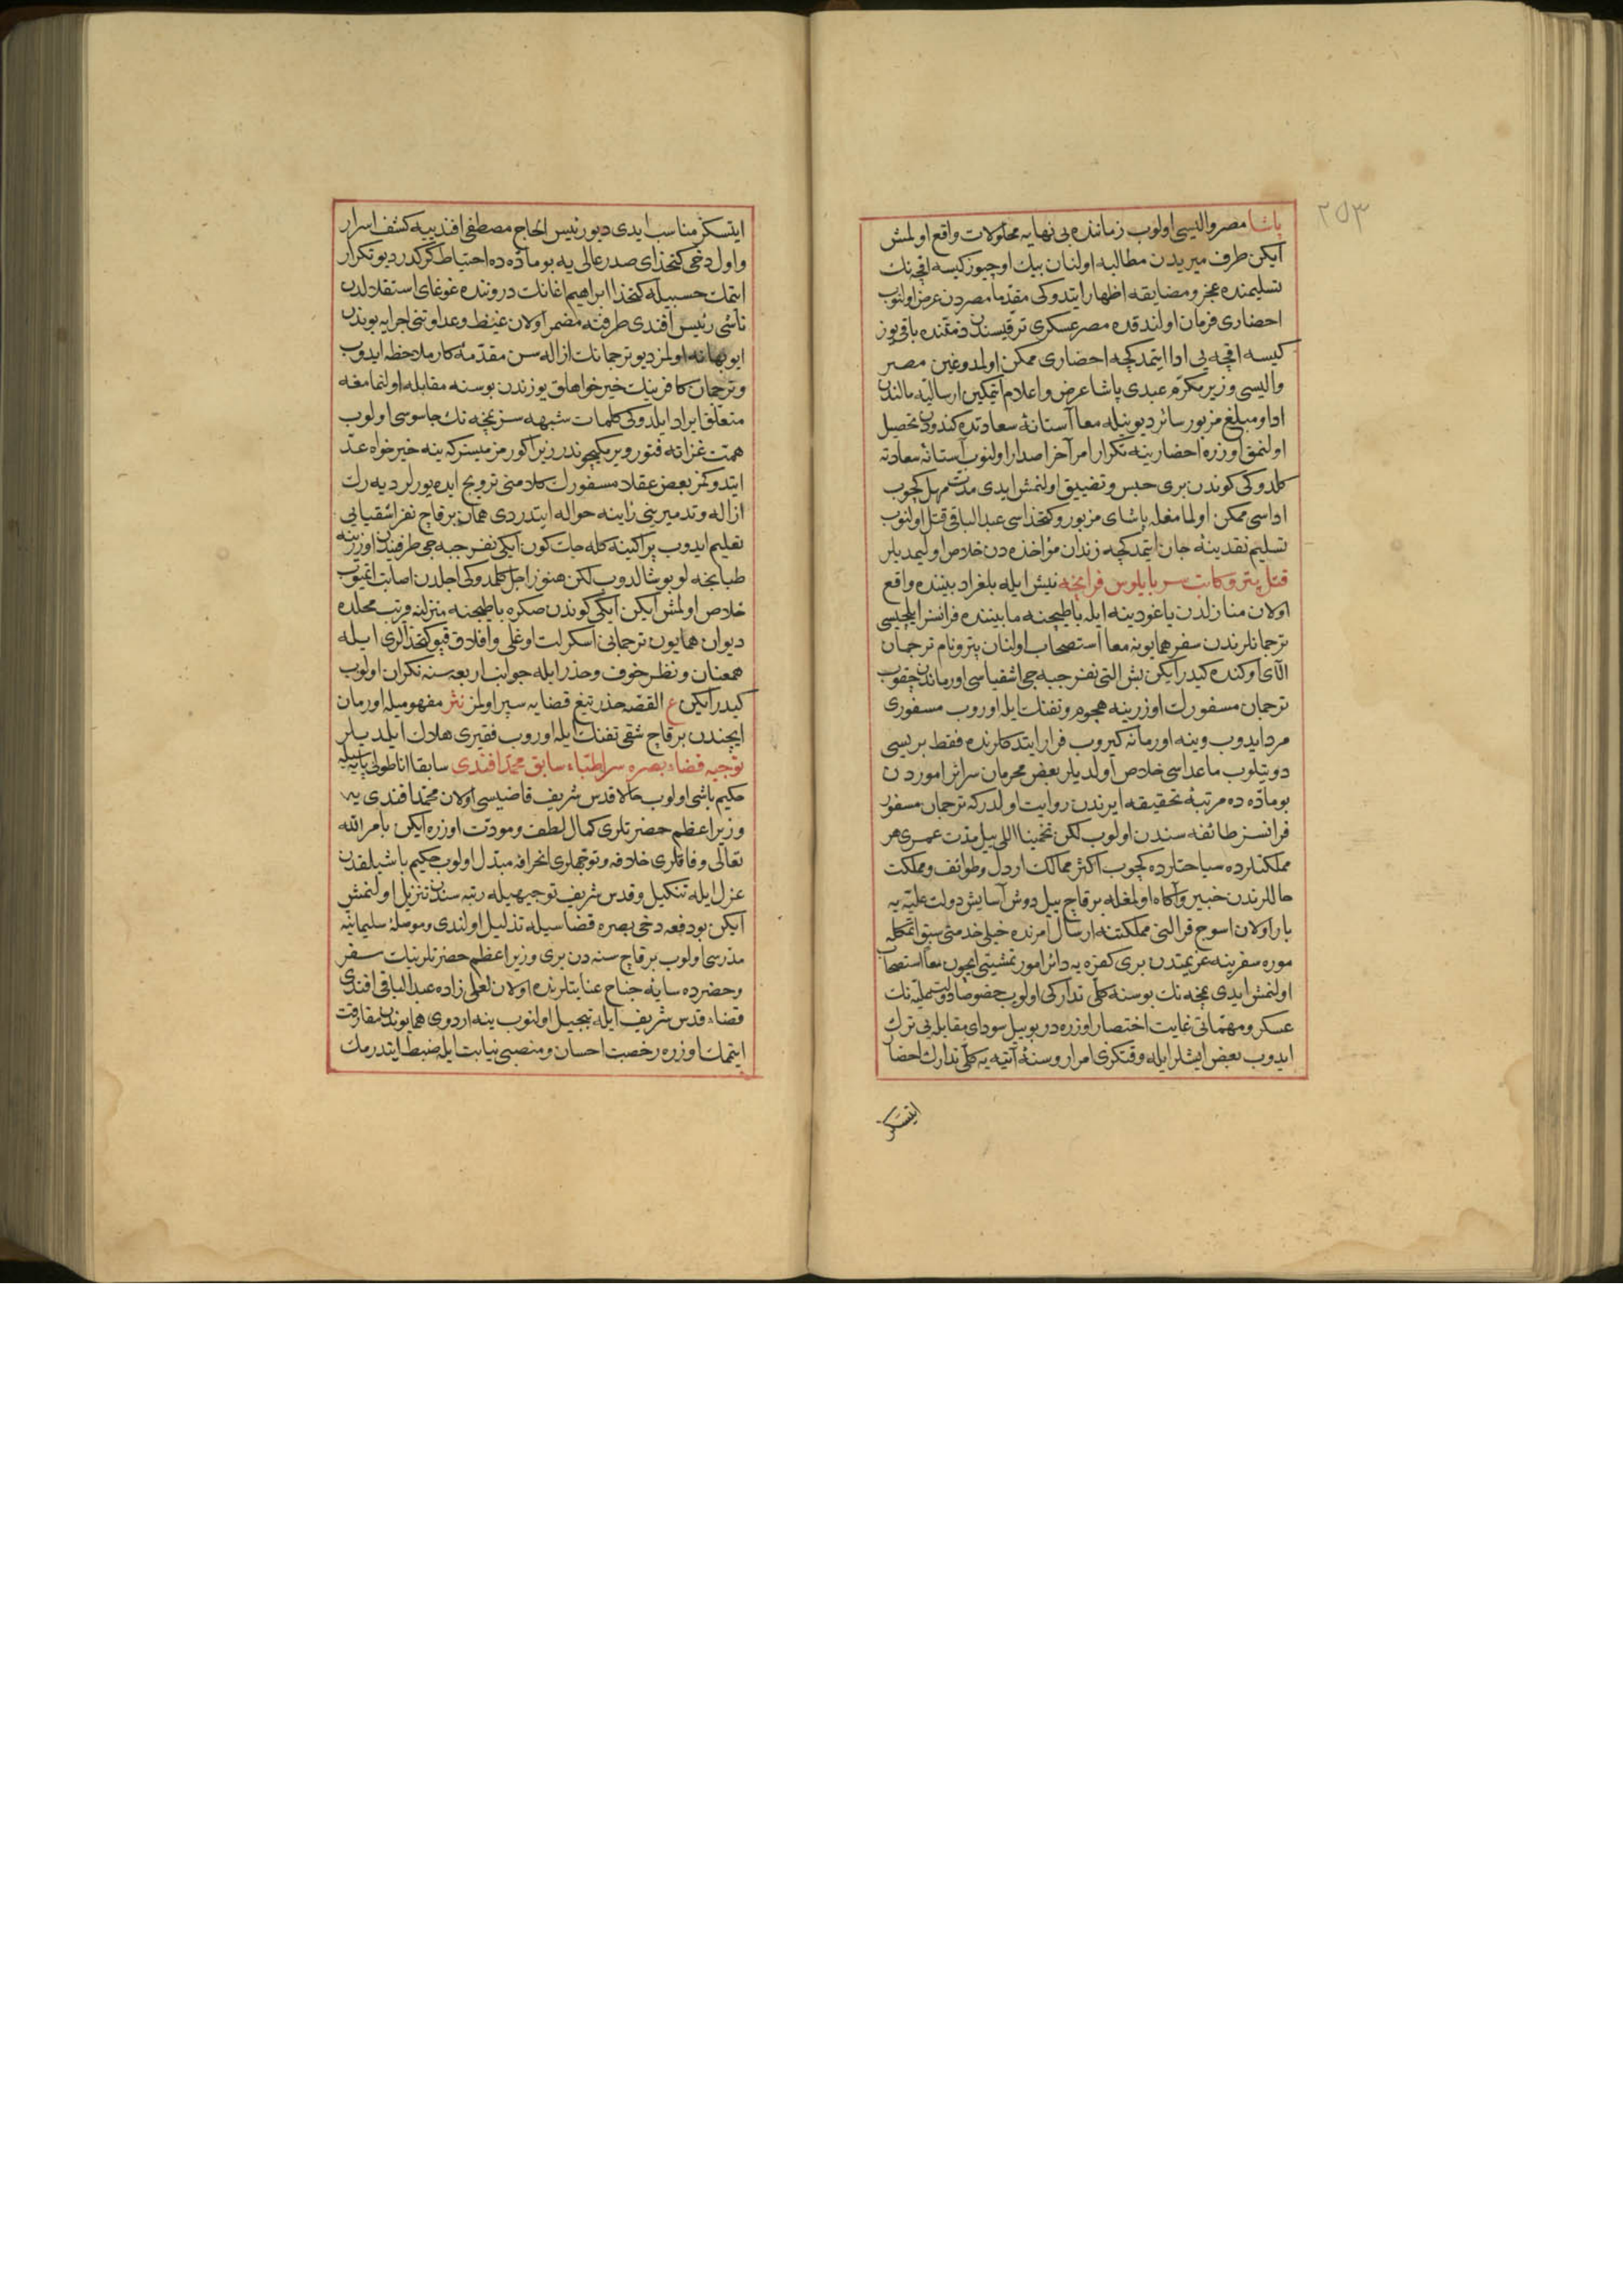 ٢٥٣
پاشا مصر والیسی اولوب زماننده بی نهایه محلولات واقع اولمش
ایکن طرف میریدن مطالبه اولنان بیك اوچیوز کیسه اقچه نك
تسلیمنده عجز و مضایقه اظهار ایتدوکی مقدما مصردن عرض اولنوب
احضاری فرمان اولندقده مصر عسکری ترقیسندن ذمتنده باقی یوز
کیسه اقچه یی ادا ایتمدکچه احضاری ممکن اولمدوغین مصر
والیسی وزیر مکرم عبدی پاشا عرض و اعلام ایتمکین ارسالیه مالندن
ادا و مبلغ مزبور سائر دیونیله معا آستانهٔ سعادتده کندودن تحصیل
اولنمق اوزره احضارینه تکرار امر آخر اصدار اولنوب آستانه سعادته
کلدوکی کوندن بری حبس و تضییق اولنمش ایدی مدت مهل کچوب
اداسی ممکن اولمامغله پاشای مزبور و کتخداسی عبدالباقی قتل اولنوب
تسلیم نقدینهٔ جان ایتمدکچه زندان مؤاخذه دن خلاص اولیمدیلر
قتل پترو کاتب سر بایلوس فرانچه نیش ایله بلغراد بیننده واقع
اولان منازلدن یاغودینه ایله باطیجنه مابیننده فرانسز ایلچیسی
ترجمانلرندن سفر همایونه معا استصحاب اولنان پترو نام ترجمان
آلای اوکنده کیدر ایکن بش التی نفر جبه جی اشقیاسی اورماندن چقوب
ترجمان مسفورك اوزرینه هجوم و تفنك ایله اوروب مسفوری
مرد ایدوب وینه اورمانه کیروب فرار ایتدکلرنده فقط بریسی
دوتیلوب ماعداسی خلاص اولدیلر بعض محرمان سرائر اموردن
بو ماده ده مرتبهٔ تحقیقه ایرندن روایت اولدرکه ترجمان مسفور
فرانسز طائفه سندن اولوب لکن تخمینا اللی ییل مدت عمری هر
مملکتلرده سیاحتلرده کچوب اکثر ممالك اردل و طوائف و مملکت
حاللرندن خبیر و آکاه اولمغله برقاچ ییل دوش آسایش دولت علیه یه
بار اولان اسوج قرالنی مملکتنه ارسال امرنده خیلی خدمتی سبق ایتمکله
موره سفرینه عزیمتدن بری کفره یه دائر امور تمشیتی ایچون معا استصحاب
اولنمش ایدی نمچه نك بو سنه کلی تدارکی اولوب خصوصا دولت علیه نك
عسکر و مهماتی غایت اختصار اوزره در بو ییل سودای مقابله یی ترك
ایدوب بعض ایشلر ایله وقتکزی امرار و سنهٔ آتیه یه کلی تدارك احضار
ایتسکز
ایتسکز مناسب ایدی دیو رئیس الحاج مصطفی افندییه کشف اسرار
و اول دخی کتخدای صدر عالی یه بو ماده ده احتیاط کرکدر دیو تکرار
ایتمك حسبیله کتخدا ابراهیم اغانك دروننده غوغای استقلالدن
ناشی رئیس افندی طرفنه مضمر اولان غیظ و عداوتنی اجرایه بوندن
ایو بهانه اولمز دیو ترجمانك ازاله سن مقدمهٔ کار ملاحظه ایدوب
و ترجمان کافرینك خیرخواهلق یوزندن بو سنه مقابله اولنمامغه
متعلق ایراد ایلدوکی کلمات شبهه سز نمچه نك جاسوسی اولوب
همت غزاته فتور ویرمکیچوندر زیرا کورمز میسزکه ینه خیرخواه عد
ایتدوکمز بعض عقلا مسفورك کلامنی ترویج ایده یورلر دیه رك
ازاله و تدمیرینی زاینه حواله ایتدردی همان برقاچ نفر اشقیایی
تعلیم ایدوب پراکینه کله جك کون ایکی نفر جبه جی طرفندن اوزرینه
طبانجه لو بوشالدوب لکن هنوز اجل کلمدوکی اجلدن اصابت ایتمیوب
خلاص اولمش ایکن ایکی کوندن صکره باطیجنه منزلنه قریب محلده
دیوان همایون ترجمانی اسکرلت اوغلی و افلاق قپو کتخدالری ایله
همعنان و نظر خوف و حذر ایله جوانب اربعه سنه نکران اولوب
کیدر ایکن ع القصه حذر تیغ قضایه سپر اولمز نثر مفهومیله اورمان
ایچندن برقاچ شقی تفنك ایله اوروب فقیری هلاك ایلدیلر
توجیه قضاء بصره سر اطباء سابق محمد افندی سابقا اناطولی پایه سیله
حکیم باشی اولوب حالا قدس شریف قاضیسی اولان محمد افندی یه
وزیر اعظم حضرتلری کمال لطف و مودت اوزره ایکن بامر الله
تعالی وفاقلری خلافه و توجهلری انحرافه مبتدل اولوب حکیم باشیلقدن
عزل ایله تنکیل و قدس شریف توجیهیله رتبه سندن تنزیل اولنمش
ایکن بو دفعه دخی بصره قضاسیله تذلیل اولندی و موصلهٔ سلیمانیه
مدرسی اولوب برقاچ سنه دن بری وزیر اعظم حضرتلرینك سفر
و حضرده سایهٔ جناح عنایتلرنده اولان لعلی زاده عبدالباقی افندی
قضاء قدس شریف ایله تبجیل اولنوب ینه اردوی همایوندن مفارقت
ایتمامك اوزره رخصت احسان و منصبی نیابت ایله ضبط ایتدرمك